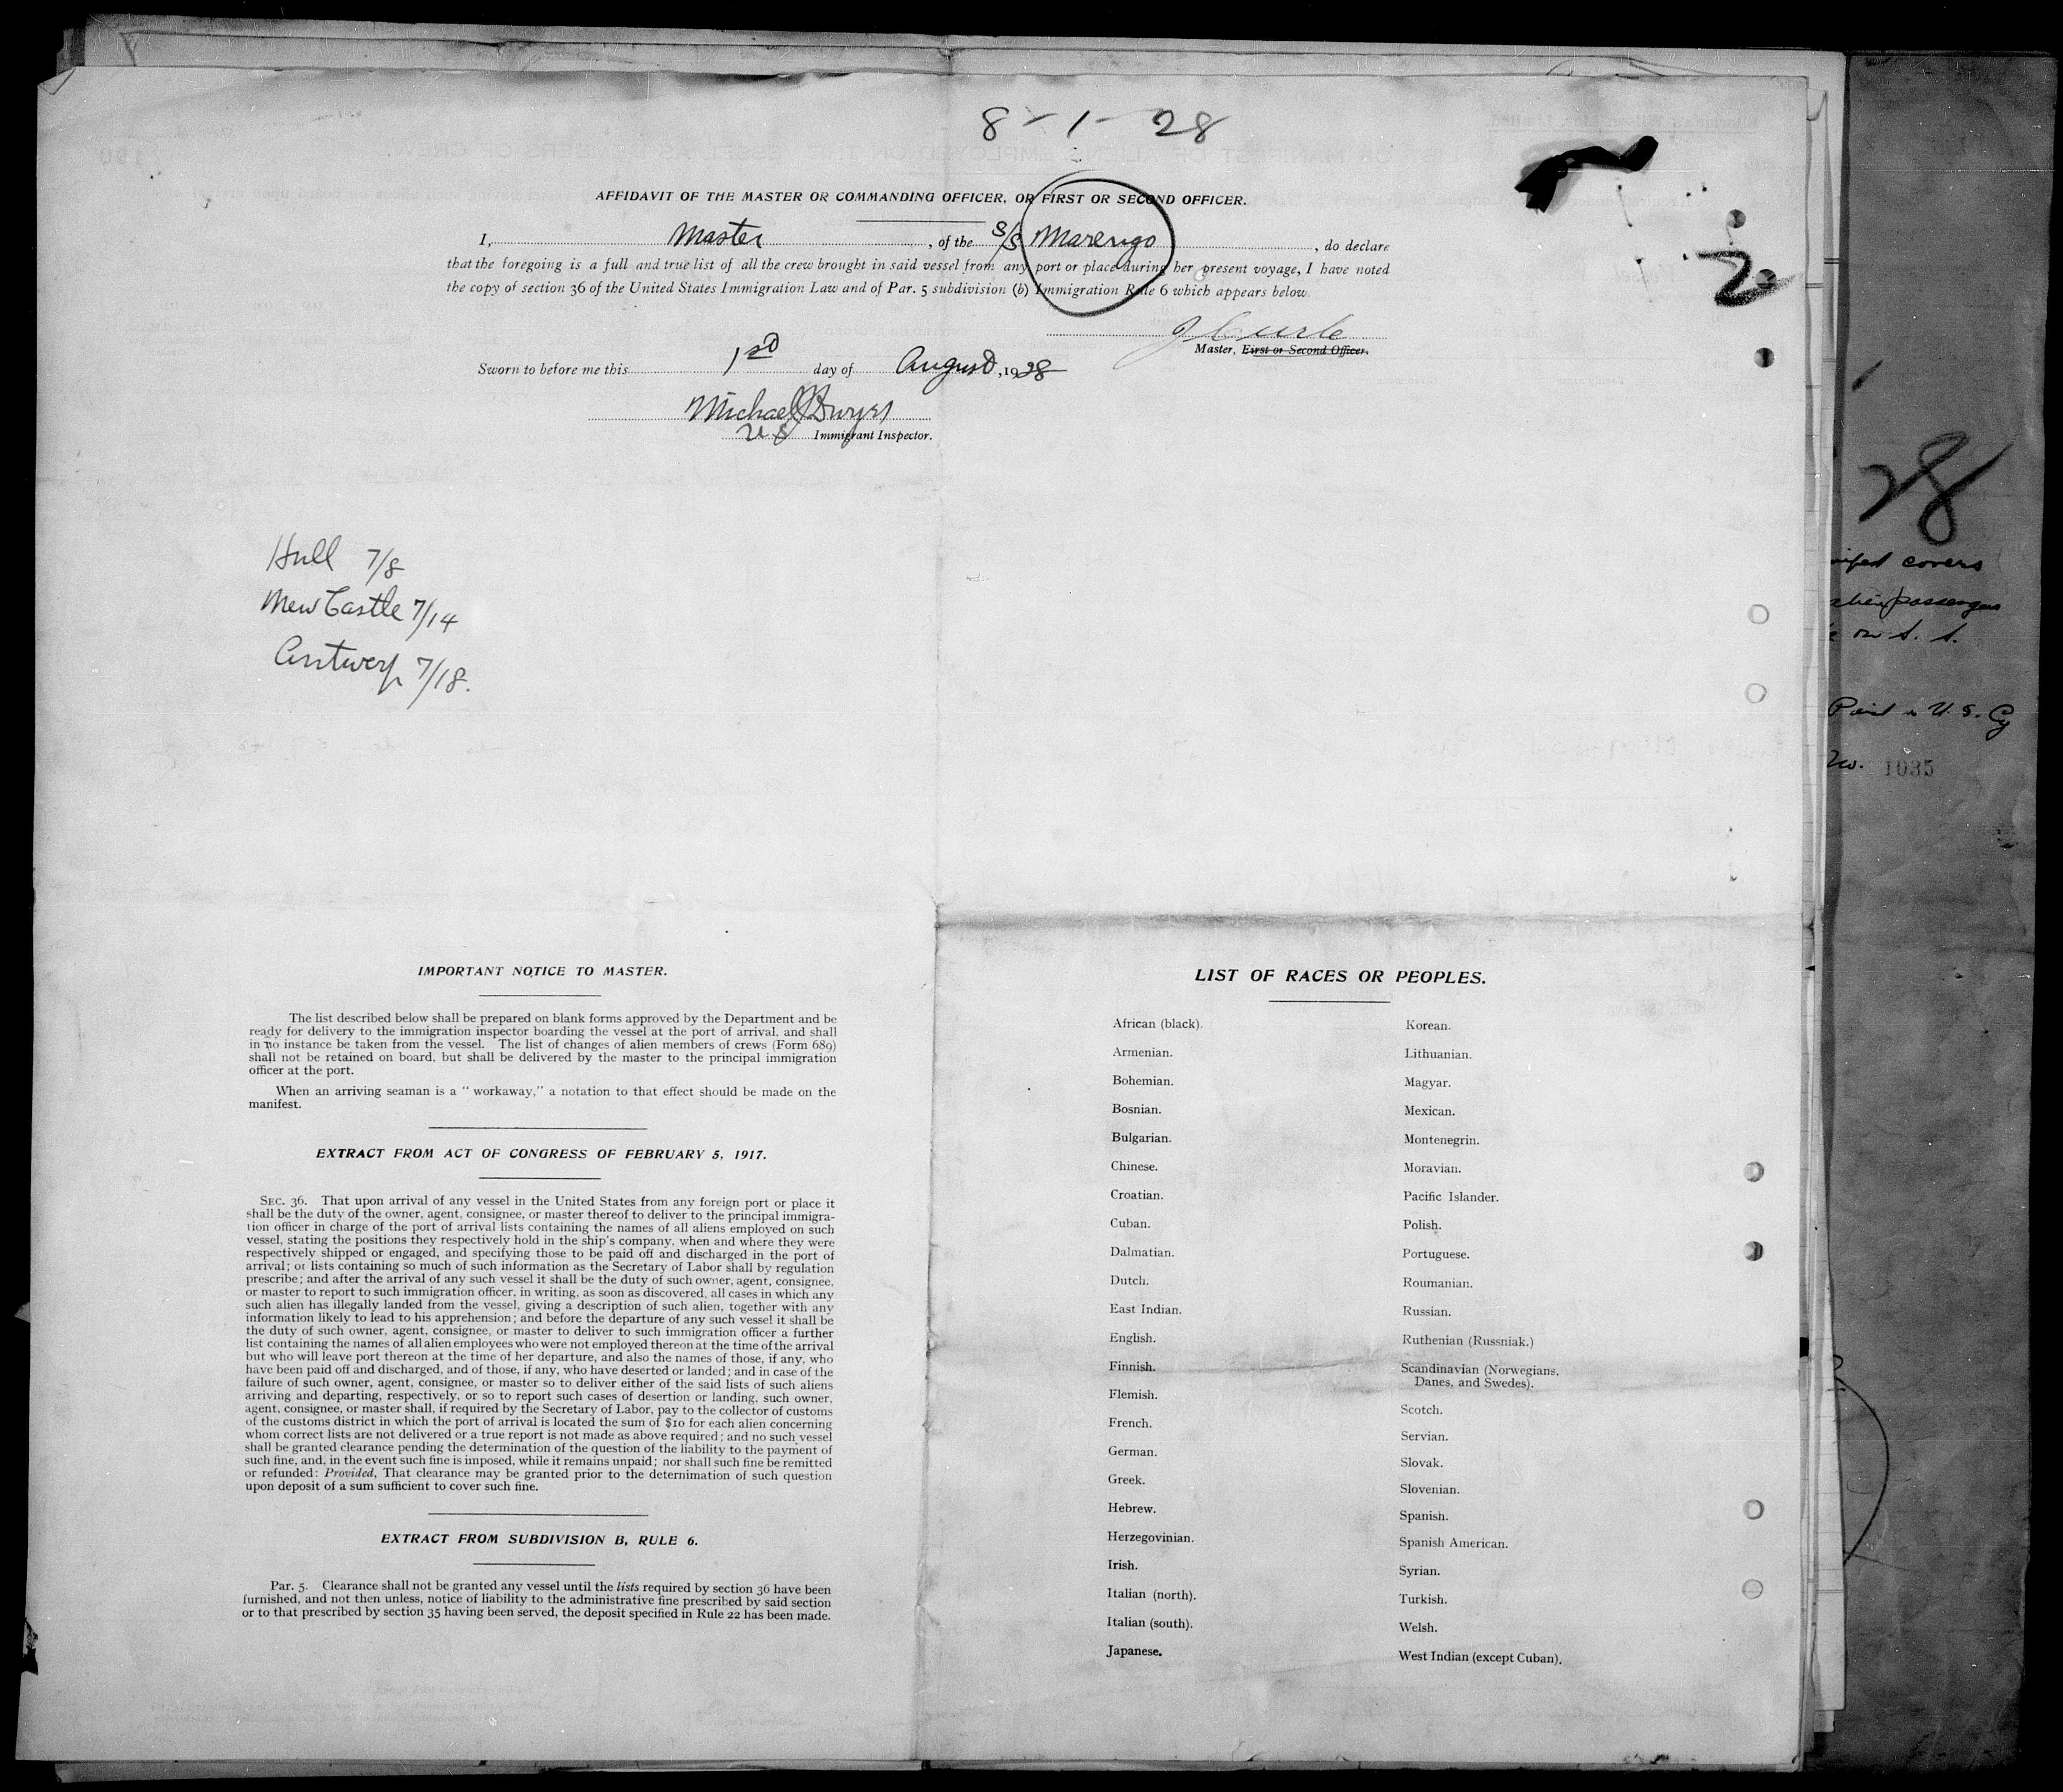 8-1-28
AFFIDAVIT OF THE MASTER OR COMMANDING OFFICER, OR FIRST OR SECOND OFFICER.
I, Master, of the S/S Marengo, do declare
that the foregoing is a full and true list of all the crew brought in said vessel from any port or place during her present voyage, I have noted
the copy of section 36 of the United States Immigration Law and of Par. 5 subdivision (b) Immigration Rule 6 which appears below.
2
Master, First or Second Officer.
Sworn to before me this 1st day of August, 1928
Michael Dwyer
US Immigrant Inspector.
28
Hull 7/8
New Castle 7/14
Antwerp 7/18.
covers
passenger
on S. S.
Paid in U. S. Cy
No. 1035
IMPORTANT NOTICE TO MASTER.
The list described below shall be prepared on blank forms approved by the Department and be
ready for delivery to the immigration inspector boarding the vessel at the port of arrival, and shall
in no instance be taken from the vessel. The list of changes of alien members of crews (Form 689)
shall not be retained on board, but shall be delivered by the master to the principal immigration
officer at the port.
When an arriving seaman is a "workaway," a notation to that effect should be made on the
manifest.
EXTRACT FROM ACT OF CONGRESS OF FEBRUARY 5, 1917.
SEC. 36. That upon arrival of any vessel in the United States from any foreign port or place it
shall be the duty of the owner, agent, consignee, or master thereof to deliver to the principal immigra-
tion officer in charge of the port of arrival lists containing the names of all aliens employed on such
vessel, stating the positions they respectively hold in the ship's company, when and where they were
respectively shipped or engaged, and specifying those to be paid off and discharged in the port of
arrival; or lists containing so much of such information as the Secretary of Labor shall by regulation
prescribe; and after the arrival of any such vessel it shall be the duty of such owner, agent, consignee,
or master to report to such immigration officer, in writing, as soon as discovered, all cases in which any
such alien has illegally landed from the vessel, giving a description of such alien, together with any
information likely to lead to his apprehension; and before the departure of any such vessel it shall be
the duty of such owner, agent, consignee, or master to deliver to such immigration officer a further
list containing the names of all alien employees who were not employed thereon at the time of the arrival
but who will leave port thereon at the time of her departure, and also the names of those, if any, who
have been paid off and discharged, and of those, if any, who have deserted or landed; and in case of the
failure of such owner, agent, consignee, or master so to deliver either of the said lists of such aliens
arriving and departing, respectively, or so to report such cases of desertion or landing, such owner,
agent, consignee, or master shall, if required by the Secretary of Labor, pay to the collector of customs
of the customs district in which the port of arrival is located the sum of $10 for each alien concerning
whom correct lists are not delivered or a true report is not made as above required; and no such vessel
shall be granted clearance pending the determination of the question of the liability to the payment of
such fine, and, in the event such fine is imposed, while it remains unpaid; nor shall such fine be remitted
or refunded: Provided, That clearance may be granted prior to the deternimation of such question
upon deposit of a sum sufficient to cover such fine.
EXTRACT FROM SUBDIVISION B, RULE 6.
Par. 5. Clearance shall not be granted any vessel until the lists required by section 36 have been
furnished, and not then unless, notice of liability to the administrative fine prescribed by said section
or to that prescribed by section 35 having been served, the deposit specified in Rule 22 has been made.
LIST OF RACES OR PEOPLES.
African (black).
Armenian.
Bohemian.
Bosnian.
Bulgarian.
Chinese.
Croatian.
Cuban.
Dalmatian.
Dutch.
East Indian.
English.
Finnish.
Flemish.
French.
German.
Greek.
Hebrew.
Herzegovinian.
Irish.
Italian (north).
Italian (south).
Japanese.
Korean.
Lithuanian.
Magyar.
Mexican.
Montenegrin.
Moravian.
Pacific Islander.
Polish.
Portuguese.
Roumanian.
Russian.
Ruthenian (Russniak.)
Scandinavian (Norwegians,
Danes, and Swedes).
Scotch.
Servian.
Slovak.
Slovenian.
Spanish.
Spanish American.
Syrian.
Turkish.
Welsh.
West Indian (except Cuban).